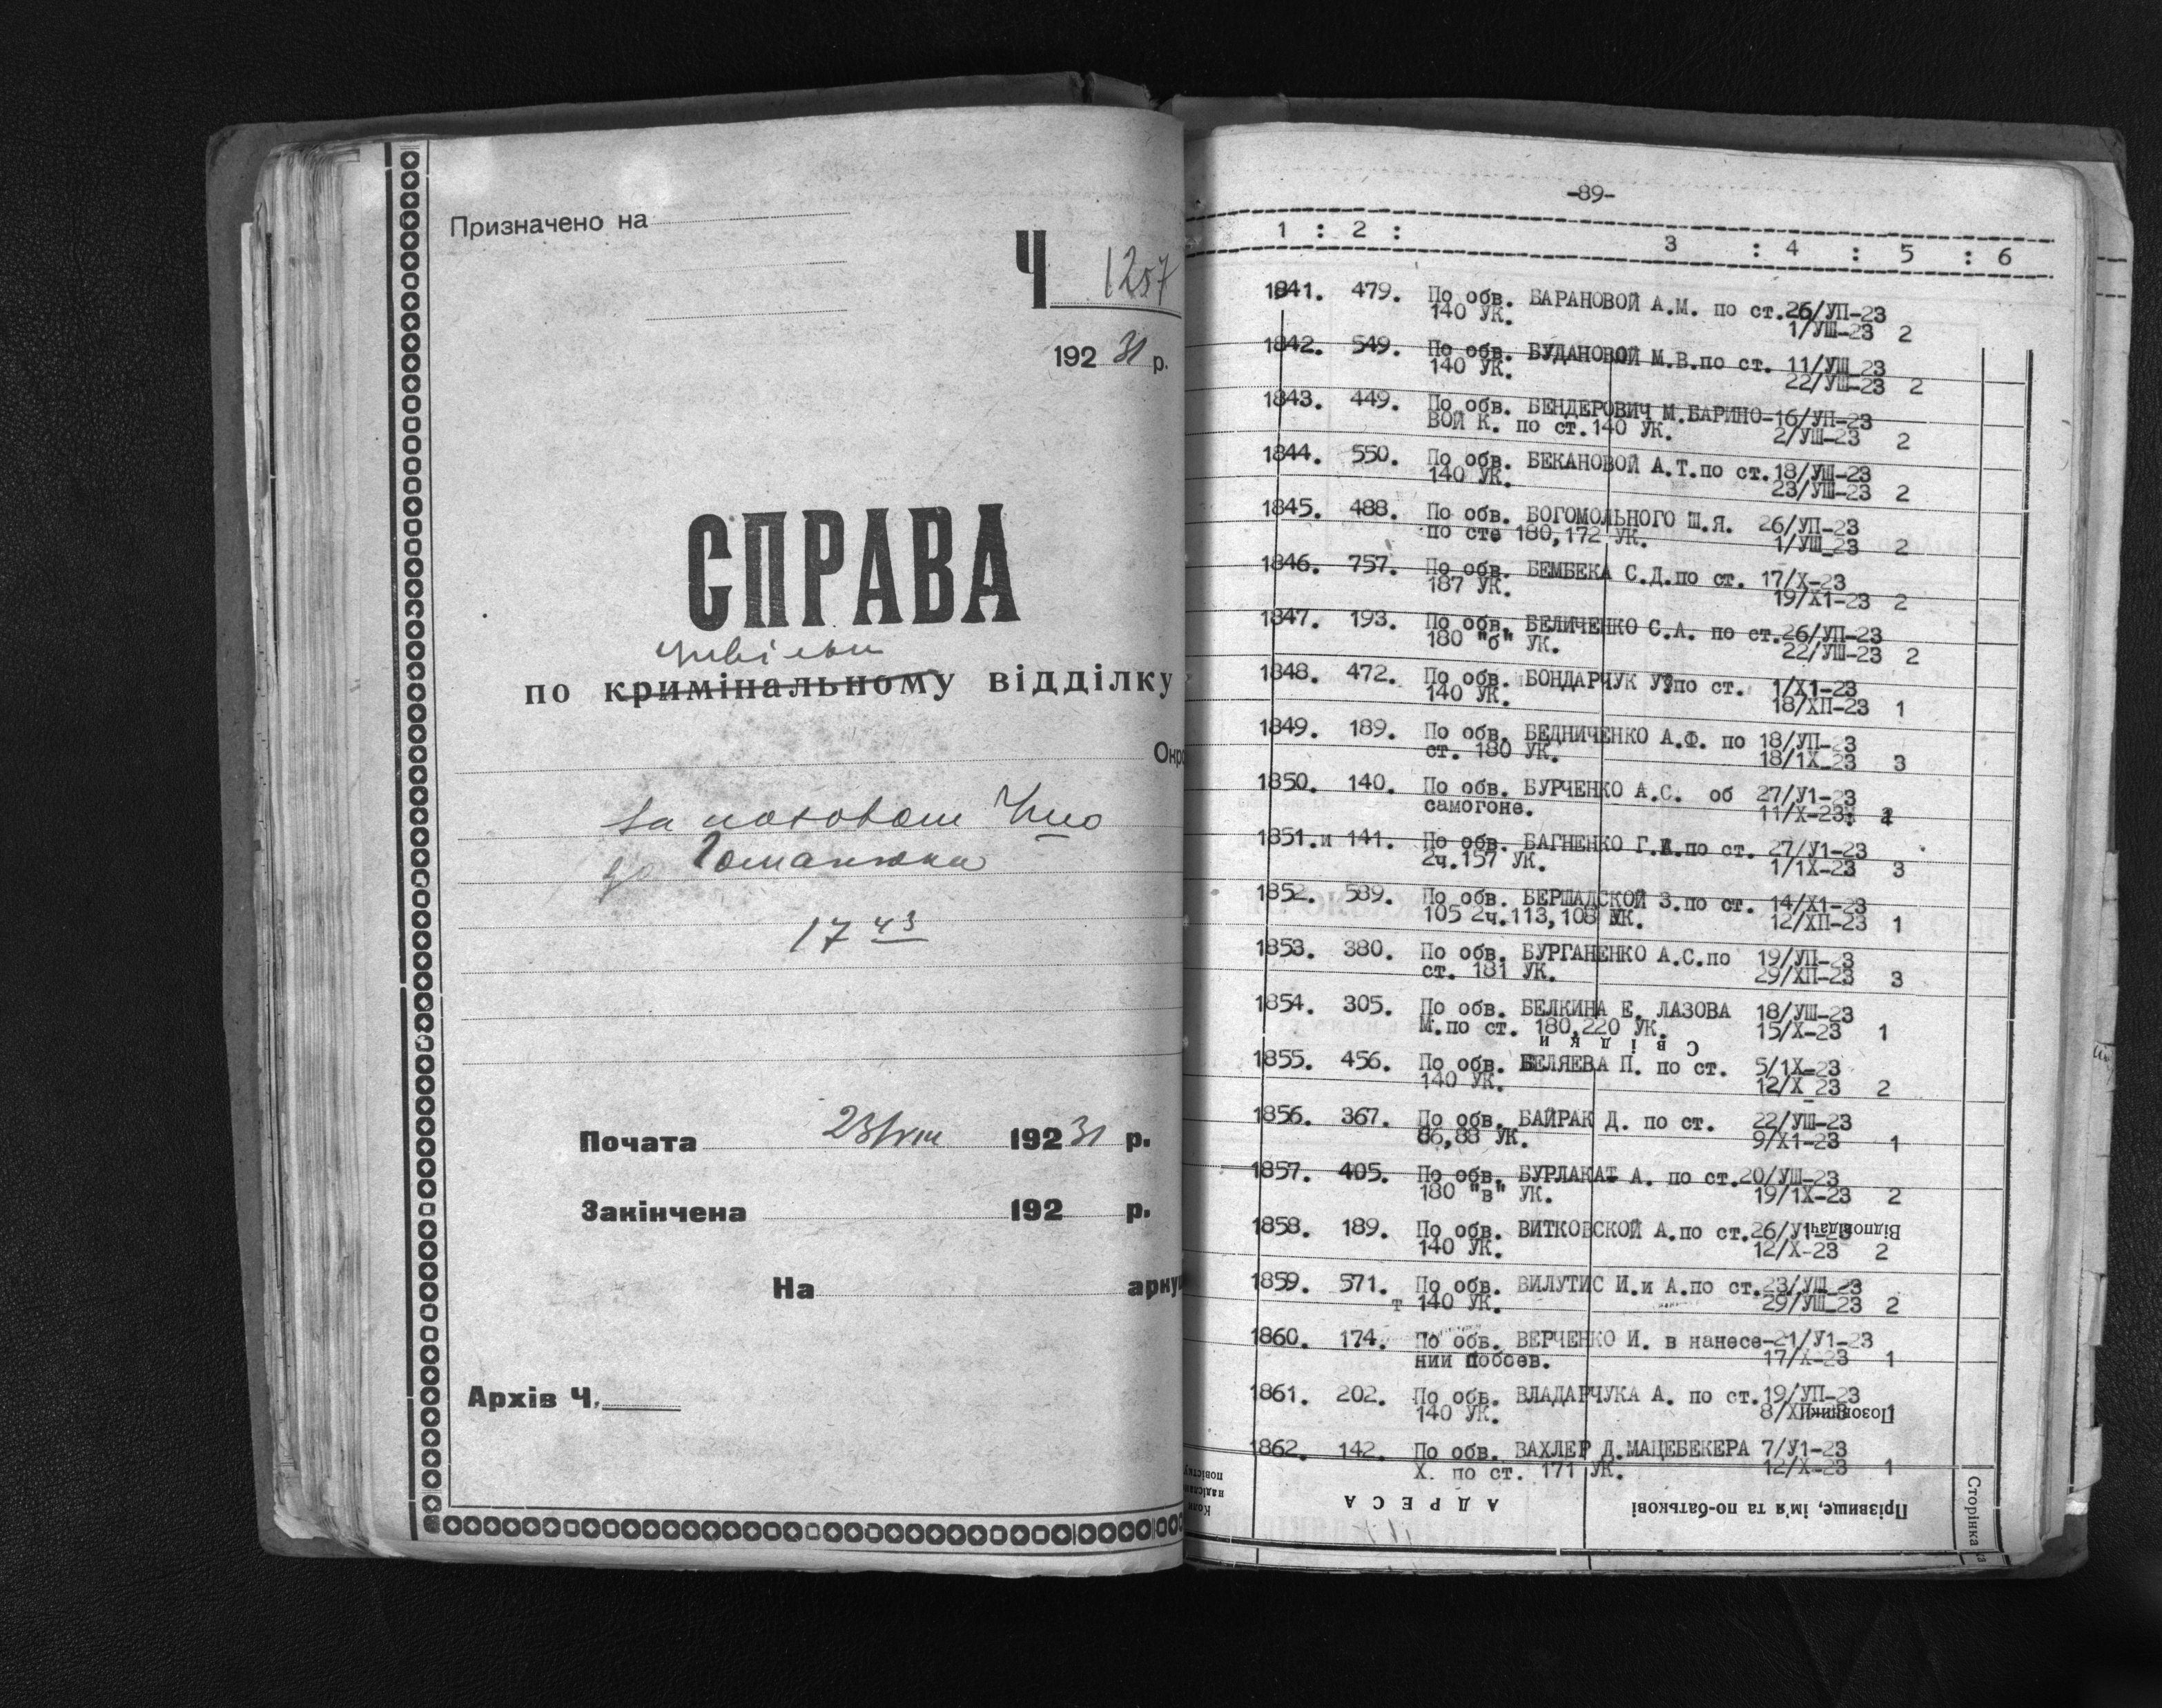 Призначено на
Ч 1257
192 31 р.
СПРАВА
цивільн
по кримінальному відділку
Окро
за позовом
до
17 43
Почата 23/VIII 192 31 р.
Закінчена 192 р.
На аркуш
Архів Ч.
-89-
1 : 2 : 3 : 4 : 5 : 6
1841. 479. По обв. БАРАНОВОЙ А.М. по ст.26/УП-23
140 УК. 1/УШ-23 2
1842. 549. По обв. БУДАНОВОЙ М.В.по ст. 11/УШ_23
140 УК. 22/УШ-23 2
1843. 449. По обв. БЕНДЕРОВИЧ М.БАРИНО-16/УП-23
ВОЙ К. по ст.140 УК. 2/УШ-23 2
1844. 550. По обв. БЕКАНОВОЙ А.Т.по ст.18/УШ-23
140 УК. 23/УШ-23 2
1845. 488. По обв. БОГОМОЛЬНОГО Ш.Я. 26/УП-23
по сте 180,172 УК. 1/УШ_23 2
1846. 757. По обв. БЕМБЕКА С.Д.по ст. 17/Х-23
187 УК. 19/Х1-23 2
1847. 193. По обв. БЕЛИЧЕНКО С.А. по ст.26/УП-23
180 "б" УК. 22/УШ-23 2
1848. 472. По обв. БОНДАРЧУК УУпо ст. 1/Х1-23
140 УК. 18/ХП-23 1
1849. 189. По обв. БЕДНИЧЕНКО А.Ф. по 18/УП-23
ст. 180 УК. 18/1Х_23 3
1850. 140. По обв. БУРЧЕНКО А.С. об 27/У1-23
самогоне. 11/Х-23
1851.и 141. По обв. БАГНЕНКО Г.И.по ст. 27/У1-23
2ч.157 УК. 1/1Х-23 3
1852. 589. По обв. БЕРШАДСКОЙ З.по ст. 14/Х1-23
105 2ч.113,108 УК. 12/ХП-23 1
1853. 380. По обв. БУРГАНЕНКО А.С.по 19/УП-23
ст. 181 УК. 29/ХП-23 3
1854. 305. По обв. БЕЛКИНА Е. ЛАЗОВА 18/УШ-23
М.по ст. 180,220 УК. 15/Х-23 1
Свідки
1855. 456. По обв. БЕЛЯЕВА П. по ст. 5/1Х-23
140 УК. 12/Х_23 2
1856. 367. По обв. БАЙРАК Д. по ст. 22/УШ-23
86,88 УК. 9/Х1-23 1
1857. 405. По обв. БУРЛАКАТ А. по ст.20/УШ-23
180 "в" УК. 19/1Х-23 2
1858. 189. По обв. ВИТКОВСКОЙ А.по ст.26/У1-23 Відповідачі
140 УК. 12/Х-23 2
1859. 571. По обв. ВИЛУТИС И.и А.по ст.23/УШ_23
т 140 УК. 29/УШ_23 2
1860. 174. По обв. ВЕРЧЕНКО И. в нанесе-21/У1-23
нии побоев. 17/Х-23 1
1861. 202. По обв. ВЛАДАРЧУКА А. по ст.19/УП-23
140 УК. 8/ХП-23 1 Позовники
1862. 142. По обв. ВАХЛЕР Д.МАЦЕБЕКЕРА 7/У1-23
Х. по ст. 171 УК. 12/Х-23 1
Коли надіслано повістку
АДРЕСА
Прізвище, ім'я та по-батькові
Сторінка